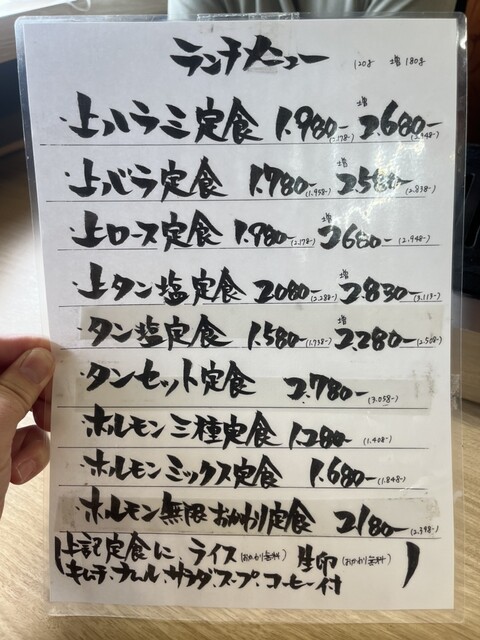 ランチメニュー 120g 増 180g
・上ハラミ定食 1.980- (2.178-) 増 2.680- (2.948-)
・上バラ定食 1.780- (1.958-) 増 2.580- (2.838-)
・上ロース定食 1.980- (2.178-) 増 2680- (2.948-)
・上タン塩定食 2080- (2.288-) 増 2.830- (3.113-)
・タン塩定食 1.580- (1.738-) 増 2.280- (2.508-)
・タンセット定食 2.780- (3.058-)
・ホルモン三種定食 1.280- (1.408-)
・ホルモンミックス定食 1.680- (1.848-)
・ホルモン無限おかわり定食 2180- (2.398-)
(上記定食に、ライス(おかわり無料) 生卵(おかわり無料)
キムチ・ナムル・サラダ・スープ・コーヒー付)